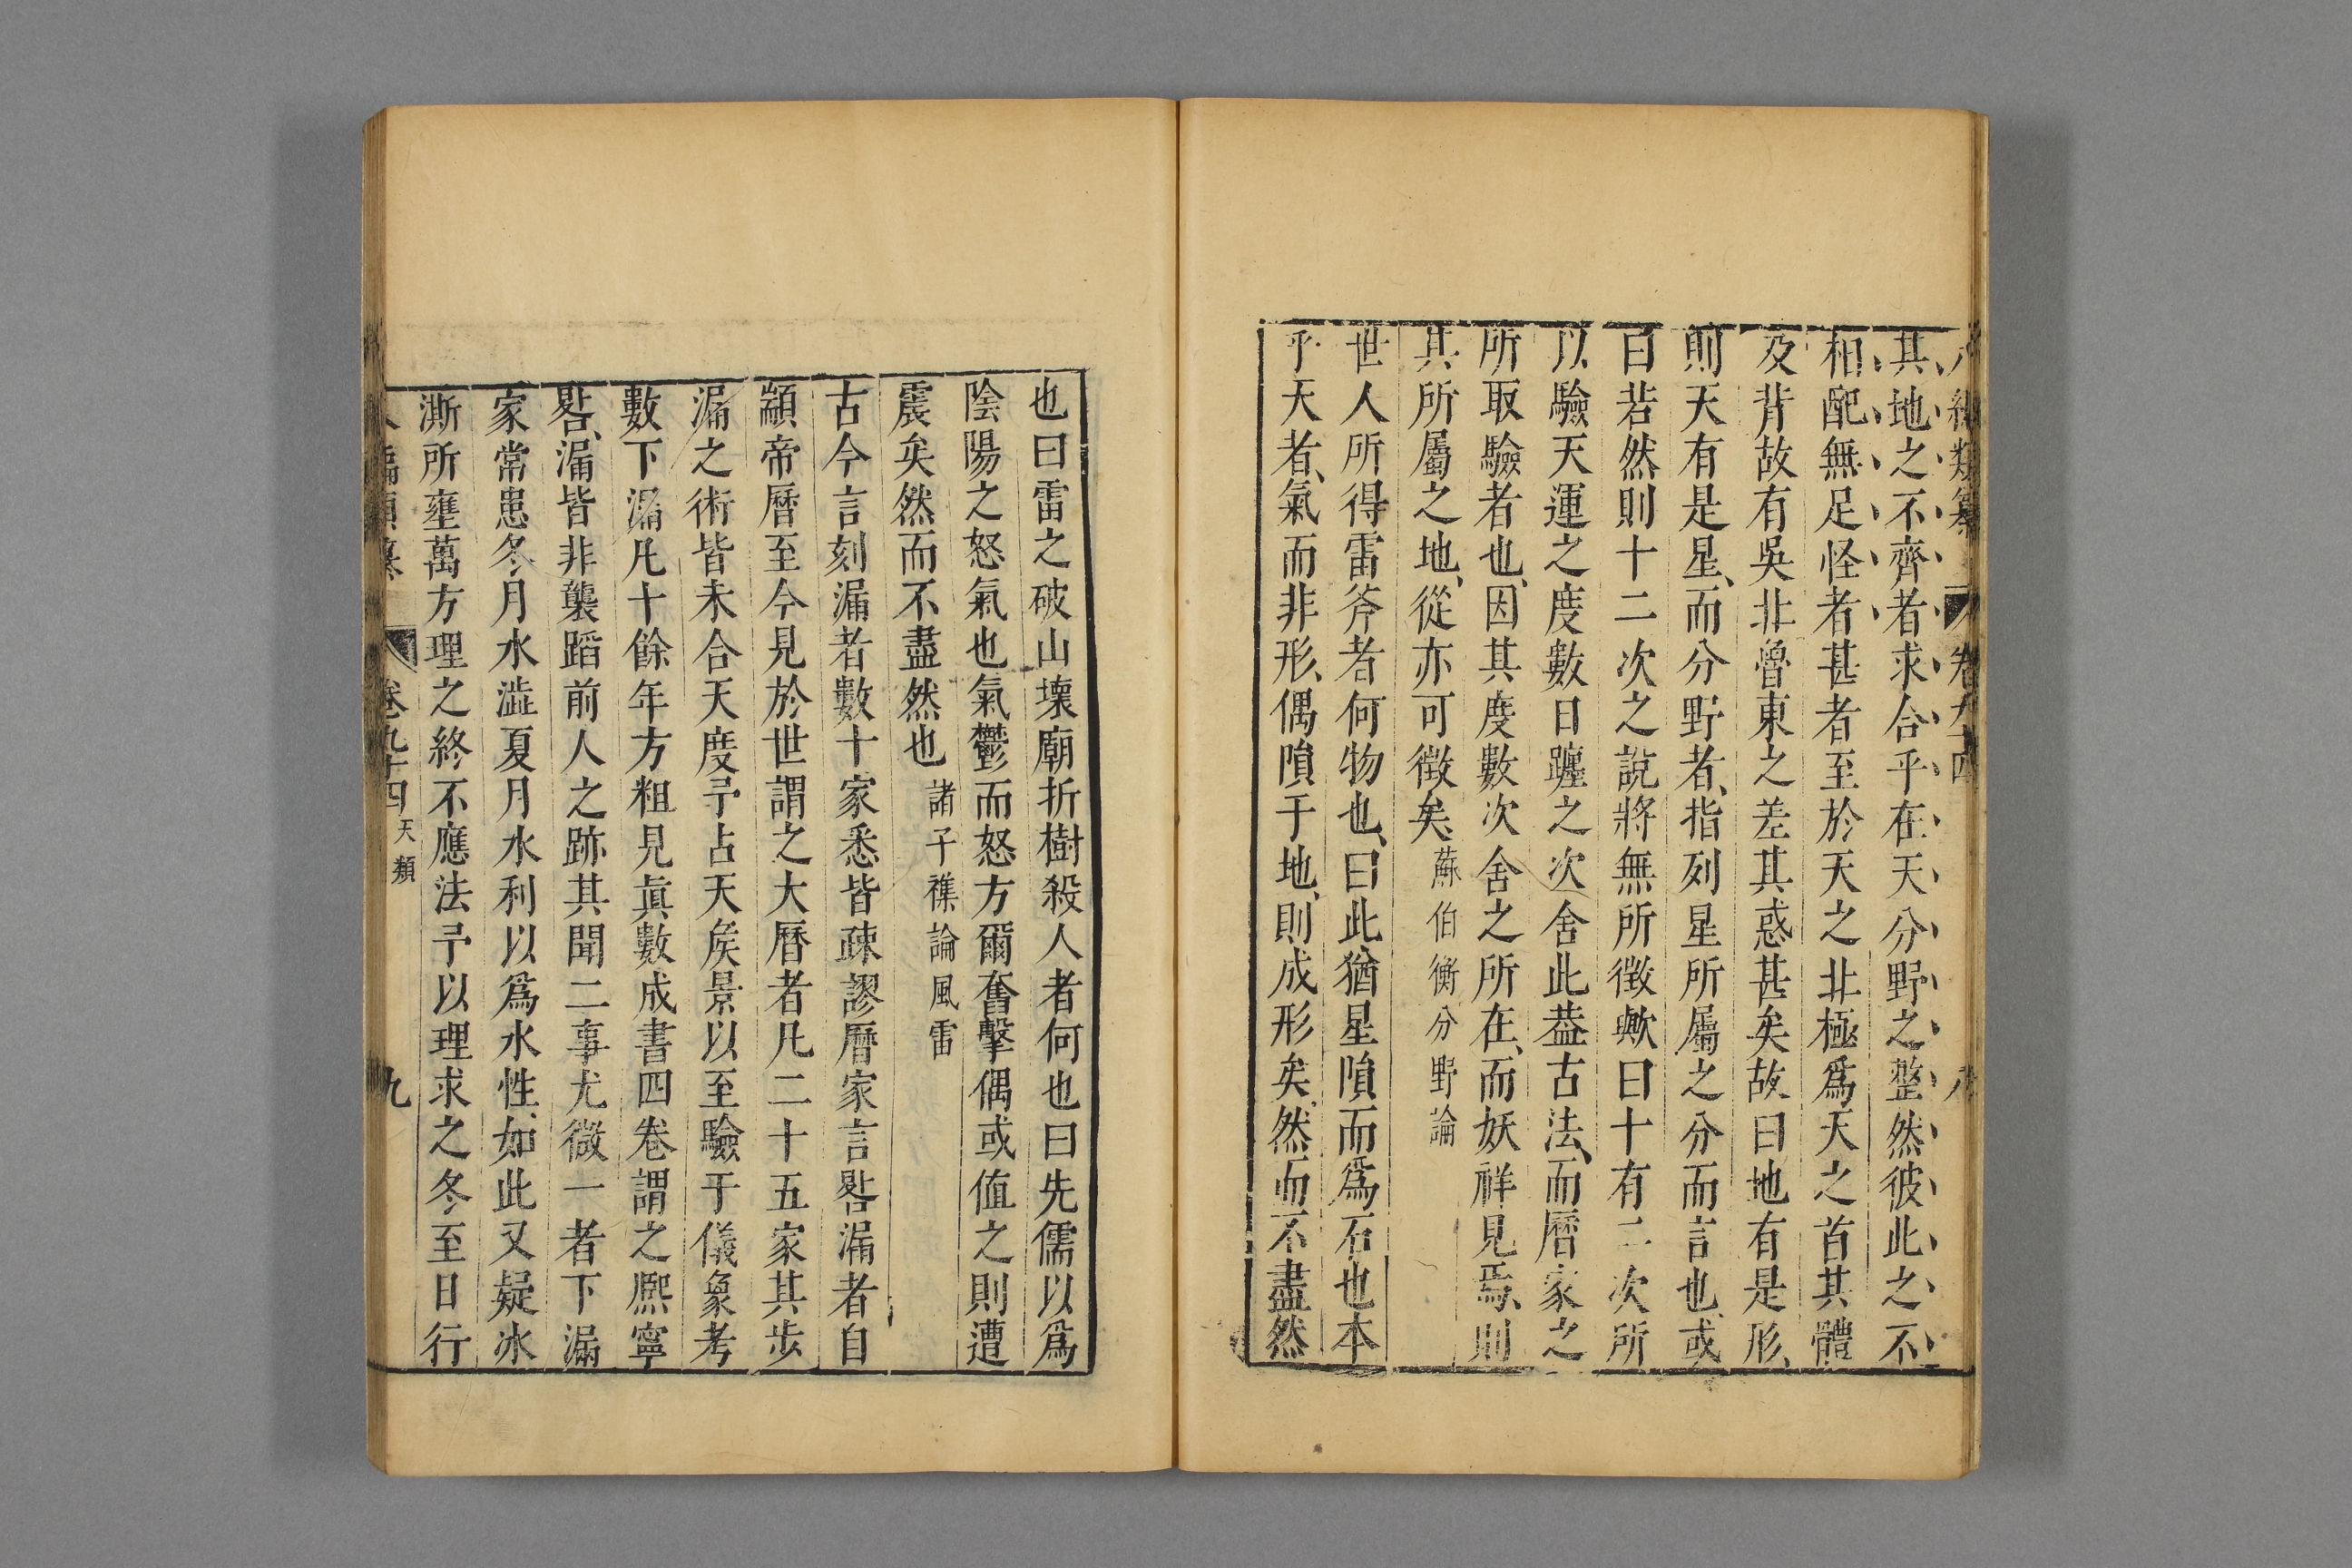 八編類纂 卷九十四 八
其地之不齊者求合乎在天分野之整然彼此之不
相配無足怪者甚者至於天之北極爲天之首其體
及背故有吳北魯東之差其惑甚矣故曰地有是形
則天有是星而分野者指列星所屬之分而言也或
曰若然則十二次之說將無所徵歟曰十有二次所
以驗天運之度數日躔之次舍此葢古法而曆家之
所取驗者也因其度數次舍之所在而妖祥見焉則
其所屬之地從亦可徵矣 蘇伯衡分野論
世人所得雷斧者何物也曰此猶星隕而爲石也本
乎天者氣而非形偶隕于地則成形矣然而不盡然
也曰雷之破山壞廟折樹殺人者何也曰先儒以爲
陰陽之怒氣也氣鬱而怒方爾奮擊偶或值之則遭
震矣然而不盡然也 諸子襍論風雷
古今言刻漏者數十家悉皆疎謬曆家言晷漏者自
顓帝曆至今見於世謂之大曆者凡二十五家其步
漏之術皆未合天度予占天矦景以至驗于儀象考
數下漏凡十餘年方粗見眞數成書四卷謂之熈寧
晷漏皆非襲蹈前人之跡其聞二事尤微一者下漏
家常患冬月水澁夏月水利以爲水性如此又疑冰
澌所壅萬方理之終不應法予以理求之冬至日行
八編類纂 卷九十四 天類 九